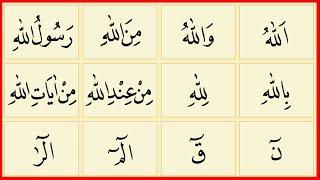 اَللّٰهُ وَاللّٰهُ مِنَ اللّٰهِ رَسُوْلُ اللّٰهِ
بِاللّٰهِ لِلّٰهِ مِنْ عِنْدِ اللّٰهِ مِنْ اٰيَاتِ اللّٰهِ
نٓ قٓ الٓمّٓ الٓرٰ